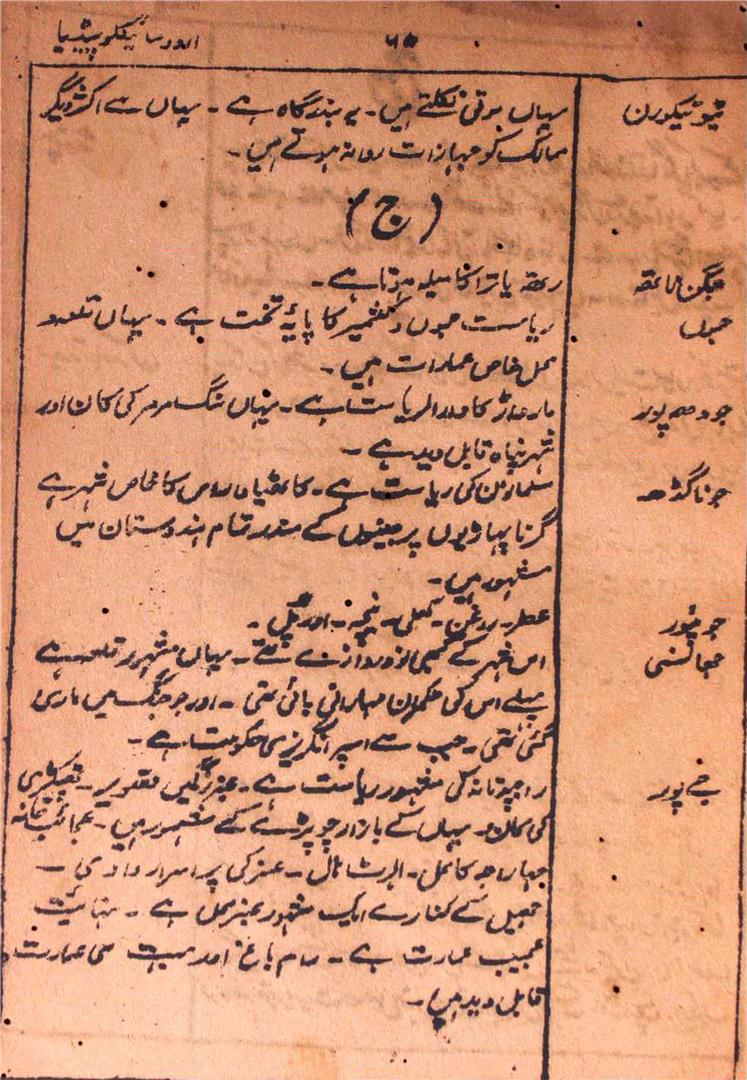 ۶۵ اردو سائیکلوپیڈیا
ٹیوٹیکورن یہاں موتی نکلتے ہیں۔ یہ بندرگاہ ہے۔ یہاں سے اکثر دیگر
ممالک کو جہازات روانہ ہوتے ہیں۔
(ج)
جگن ناتھ رتھ یاترا کا میلہ ہوتا ہے۔
جموں ریاست جموں و کشمیر کا پایۂ تخت ہے۔ یہاں قلعہ و
محل خاص عمارات ہیں۔
جودھپور مارواڑ کا صدر الریاست ہے۔ یہاں سنگ مرمر کی کان اور
شہر پناہ قابل دید ہے۔
جوناگڈھ مسلمانوں کی ریاست ہے۔ کاٹھیاواڑ کا خاص شہر ہے
گرنا پہاڑیوں پر جینیوں کے مندر تمام ہندوستان میں
مشہور ہیں۔
جونپور عطر۔ روغن۔ نیچہ۔ اور
جھانسی اس شہر کے کبھی نو دروازے تھے۔ یہاں مشہور قلعہ ہے
پہلے اس کی حکمران مہارانی بائی تھی۔ اور جو جنگ میں ماری
گئی تھی۔ جب سے اسپر انگریزی حکومت ہے۔
جے پور راجپوتانہ کی مشہور ریاست ہے۔
کی کان۔ یہاں کے بازار چوپڑ کے مشہور ہیں۔ عجائب خانہ
مہاراجہ کا محل۔ البرٹ ہال۔ عنبر کی پر اسرار وادی۔
جھیل کے کنارے ایک مشہور عنبر محل ہے۔ نہایت
عجیب عمارت ہے۔ رام باغ اور بہت سی عمارت
قابل دید ہیں۔